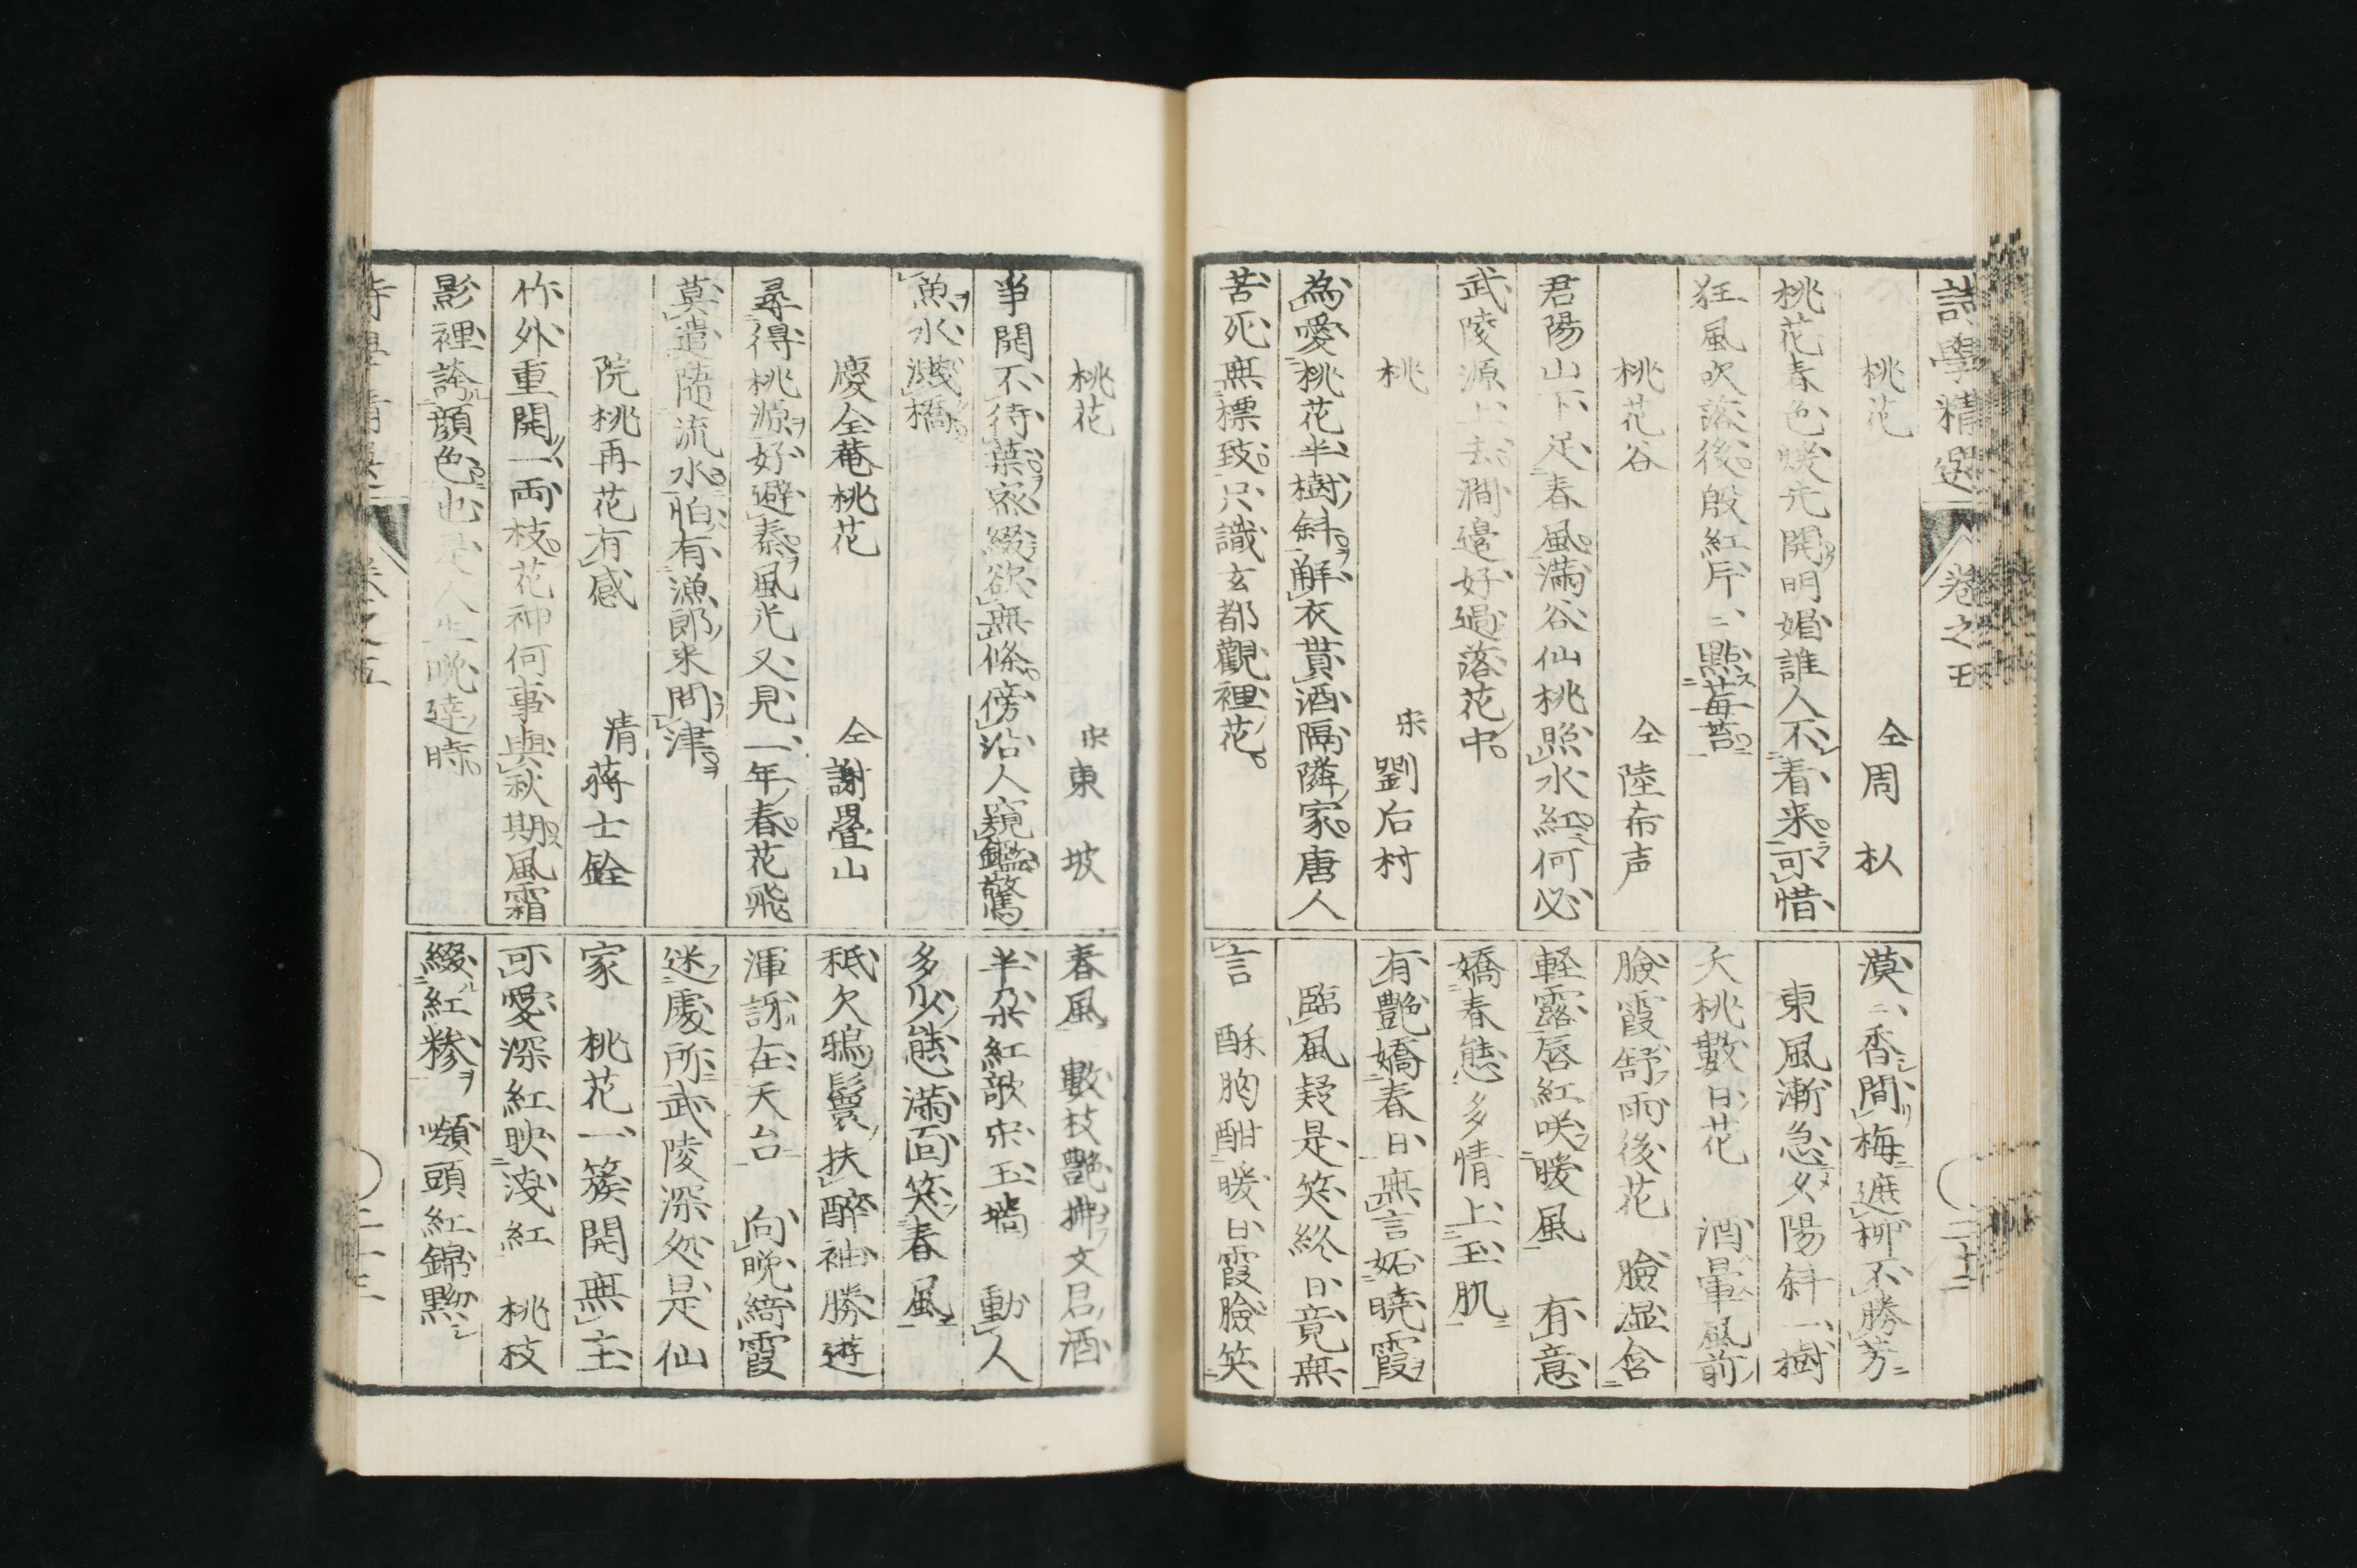 詩學精選 卷之五
桃花 仝 周朴
桃花春色暖先開明媚誰人不看来可惜
狂風吹落後殷紅片〻點莓苔
桃花谷 仝 陸希声
君陽山下足春風滿谷仙桃照水紅何必
武陵源上去澗邉好過落花中
桃 宋 劉后村
為愛桃花半樹斜解衣貰酒隔隣家唐人
苦死無標致只識玄都觀裡花
漠〻香間梅遮柳不勝芳
東風漸急夕陽斜一樹
夭桃數日花 酒暈風前
臉霞舒雨後花 臉湿含
軽露唇紅咲暖風 有意
嬌春態多情上玉肌
有艶嬌春日無言妬曉霞
臨風疑是笑終日竟無
言 酥胸酣暖日霞臉笑
二十二
桃花 宋 東坡
争開不待葉密綴欲無條傍沼人窺鑑驚
魚水濺橋
慶全菴桃花 仝 謝疊山
尋得桃源好避秦風光又見一年春花飛
莫遣随流水怕有漁郎来問津
院桃再花有感 清 蒋士銓
竹外重開一両枝花神何事與秋期風霜
影裡誇顔色也是人生晩達時
春風 數枝艶拂文君酒
半朶紅欹宋玉墻 動人
多少態滿面笑春風
秪欠鴉鬟扶醉袖勝遊
渾訝在天台 向晩綺霞
迷處所武陵深処是仙
家 桃花一簇開無主
可愛深紅映淺紅 桃枝
綴紅糝 頭紅錦
卷之五
二十三